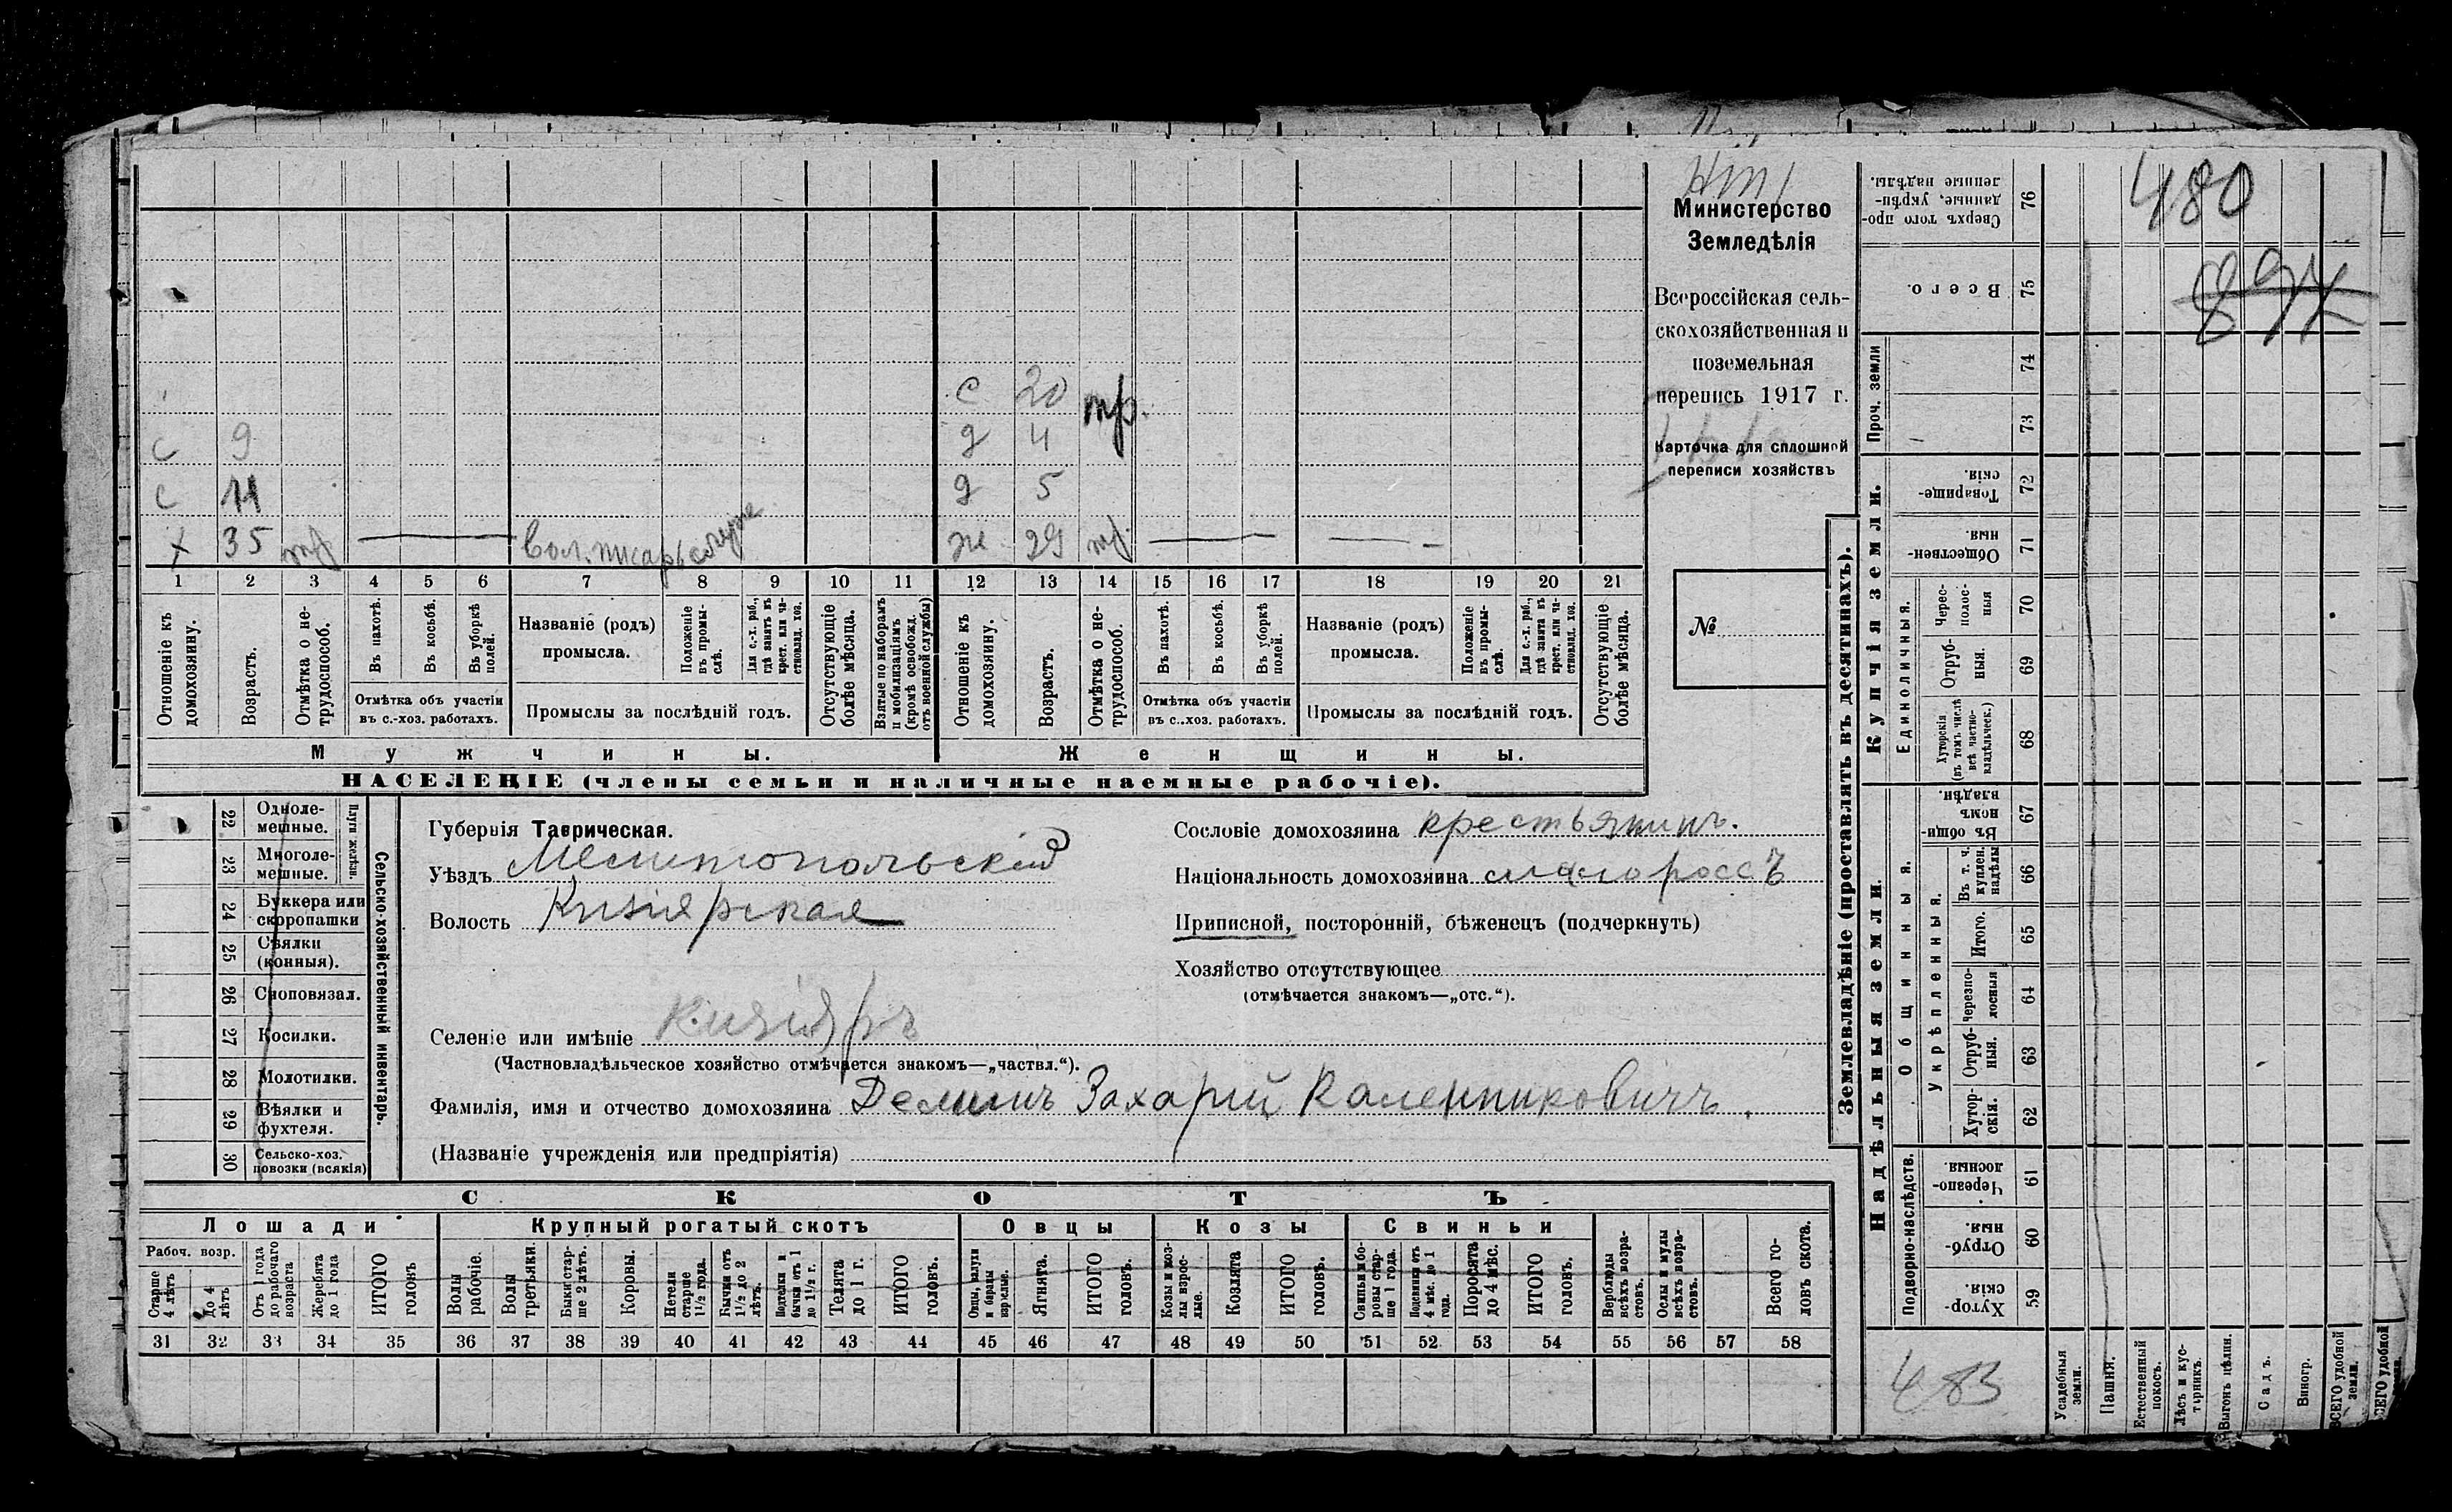 480
Министерство
Земледѣлія
Всероссійская сель-
скохозяйственная и
поземельная
перепись 1917 г.
Карточка для сплошной
переписи хозяйствъ
№
с 20 нр.
с 9 д 4
с 11 д 5
х 35 нр вол. писарь служ ж 29 нр
1 2 3 4 5 6 7 8 9 10 11 12 13 14 15 16 17 18 19 20 21
Отношеніе къ домохозяину.
Возрастъ.
Отмѣтка о не-трудоспособ.
Въ пахотѣ.
Въ косьбѣ.
Въ уборкѣ полей.
Отмѣтка объ участіи
въ с.-хоз. работахъ.
Названіе (родъ)
промысла.
Положеніе въ промы-слѣ.
Для с.-х. раб., гдѣ занятъ въ крест. или ча-стновлад. хоз.
Промыслы за послѣдній годъ.
Отсутствующіе болѣе мѣсяца.
Взятые по наборамъ и мобилизаціямъ (кромѣ освобожд. отъ военной службы)
Отношеніе къ домохозяину.
Возрастъ.
Отмѣтка о не-трудоспособ.
Въ пахотѣ.
Въ косьбѣ.
Въ уборкѣ полей.
Отмѣтка объ участіи
въ с.-хоз. работахъ.
Названіе (родъ)
промысла.
Положеніе въ промы-слѣ.
Для с.-х. раб., гдѣ занята въ крест. или ча-стновлад. хоз.
Промыслы за послѣдній годъ.
Отсутствующіе болѣе мѣсяца.
Мужчины. Женщины.
НАСЕЛЕНІЕ (члены семьи и наличные наемные рабочіе).
Губернія Таврическая.
Уѣздъ Мелитопольскій
Волость Кизіярская
Селеніе или имѣніе Кизіяръ
(Частновладѣльческое хозяйство отмѣчается знакомъ—„частвл.“).
Фамилія, имя и отчество домохозяина Деминъ Захарій Каленниковичъ.
(Названіе учрежденія или предпріятія)
Сословіе домохозяина крестьянинъ.
Національность домохозяина малороссъ
Приписной, посторонній, бѣженецъ (подчеркнуть)
Хозяйство отсутствующее
(отмѣчается знакомъ—„отс.“).
Сельско-хозяйственный инвентарь.
Плуги желѣзн.
22 Одноле-мешные.
23 Многоле-мешные.
24 Буккера или скоропашки
25 Сѣялки (конныя).
26 Сноповязал.
27 Косилки.
28 Молотилки.
29 Вѣялки и фухтеля.
30 Сельско-хоз. повозки (всякія)
СКОТЪ
Лошади Крупный рогатый скотъ Овцы Козы Свиньи
Рабоч. возр.
Старше 4 лѣтъ
До 4 лѣтъ
Отъ 1 года до рабочаго возраста
Жеребята до 1 года
ИТОГО головъ
Волы рабочіе.
Волы третьяки.
Быки стар-ше 2 лѣтъ.
Коровы.
Нетели старше 1½ года.
Бычки отъ 1½ до 2 лѣтъ.
Подтелки и бычки отъ 1 до 1½ г.
Телята до 1 г.
ИТОГО головъ.
Овцы, валухи и бараны взрослые.
Ягнята.
ИТОГО головъ.
Козы и коз-лы взрос-лые.
Козлята
ИТОГО головъ.
Свиньи и бо-ровы стар-ше 1 года.
Подсвинки отъ 4 мѣс. до 1 года.
Поросята до 4 мѣс.
ИТОГО головъ.
Верблюды всѣхъ возра-стовъ.
Ослы и мулы всѣхъ возра-стовъ.
Всего го-ловъ скота.
31 32 33 34 35 36 37 38 39 40 41 42 43 44 45 46 47 48 49 50 51 52 53 54 55 56 57 58
Землевладѣніе (проставлять въ десятинахъ).
Сверхъ того про-данные, укрѣп-ленные надѣлы. 76
Всего. 75
Проч. земли 74 73
Купчія земли.
Товарище-скія. 72
Обществен-ныя 71
Единоличныя.
Черес-полос-ныя 70
Отруб-ныя. 69
Хуторскія (въ томъ числѣ всѣ частно-владѣльческ.) 68
Надѣльныя земли.
Общинныя.
Въ общи-номъ владѣн. 67
Укрѣпленныя.
Въ т. ч. куплен. надѣлы 66
Итого. 65
Черезпо-лосныя 64
Отруб-ныя. 63
Хутор-скія. 62
Подворно-наслѣдств.
Черезпо-лосныя. 61
Отруб-ныя. 60
Хутор-скія. 59
483
Усадебныя земли.
Пашня.
Естественный покосъ.
Лѣсъ и кус-тарникъ.
Выгонъ цѣлин.
Садъ.
Виногр.
ВСЕГО удобной земли.